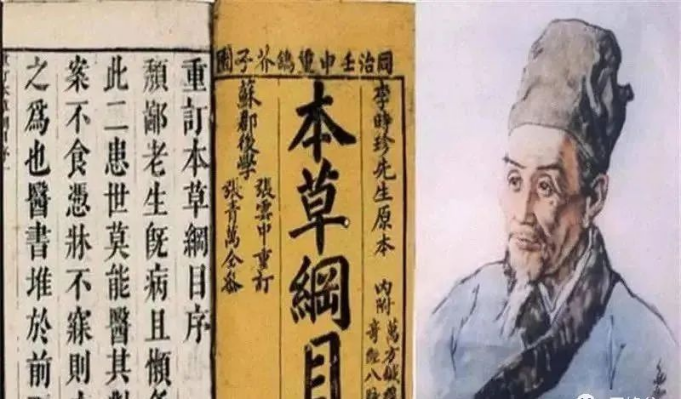 同治壬申重鐫芥子園
李時珍先生原本
內附
萬方鍼
奇經八
本草綱目
張雲中重訂
張青萬仝參
蘇郡後學
重訂本草綱目序
頽鄙老生旣病且懶
此二患世莫能醫其對
案不食憑牀不寐則
之爲也醫書堆於前